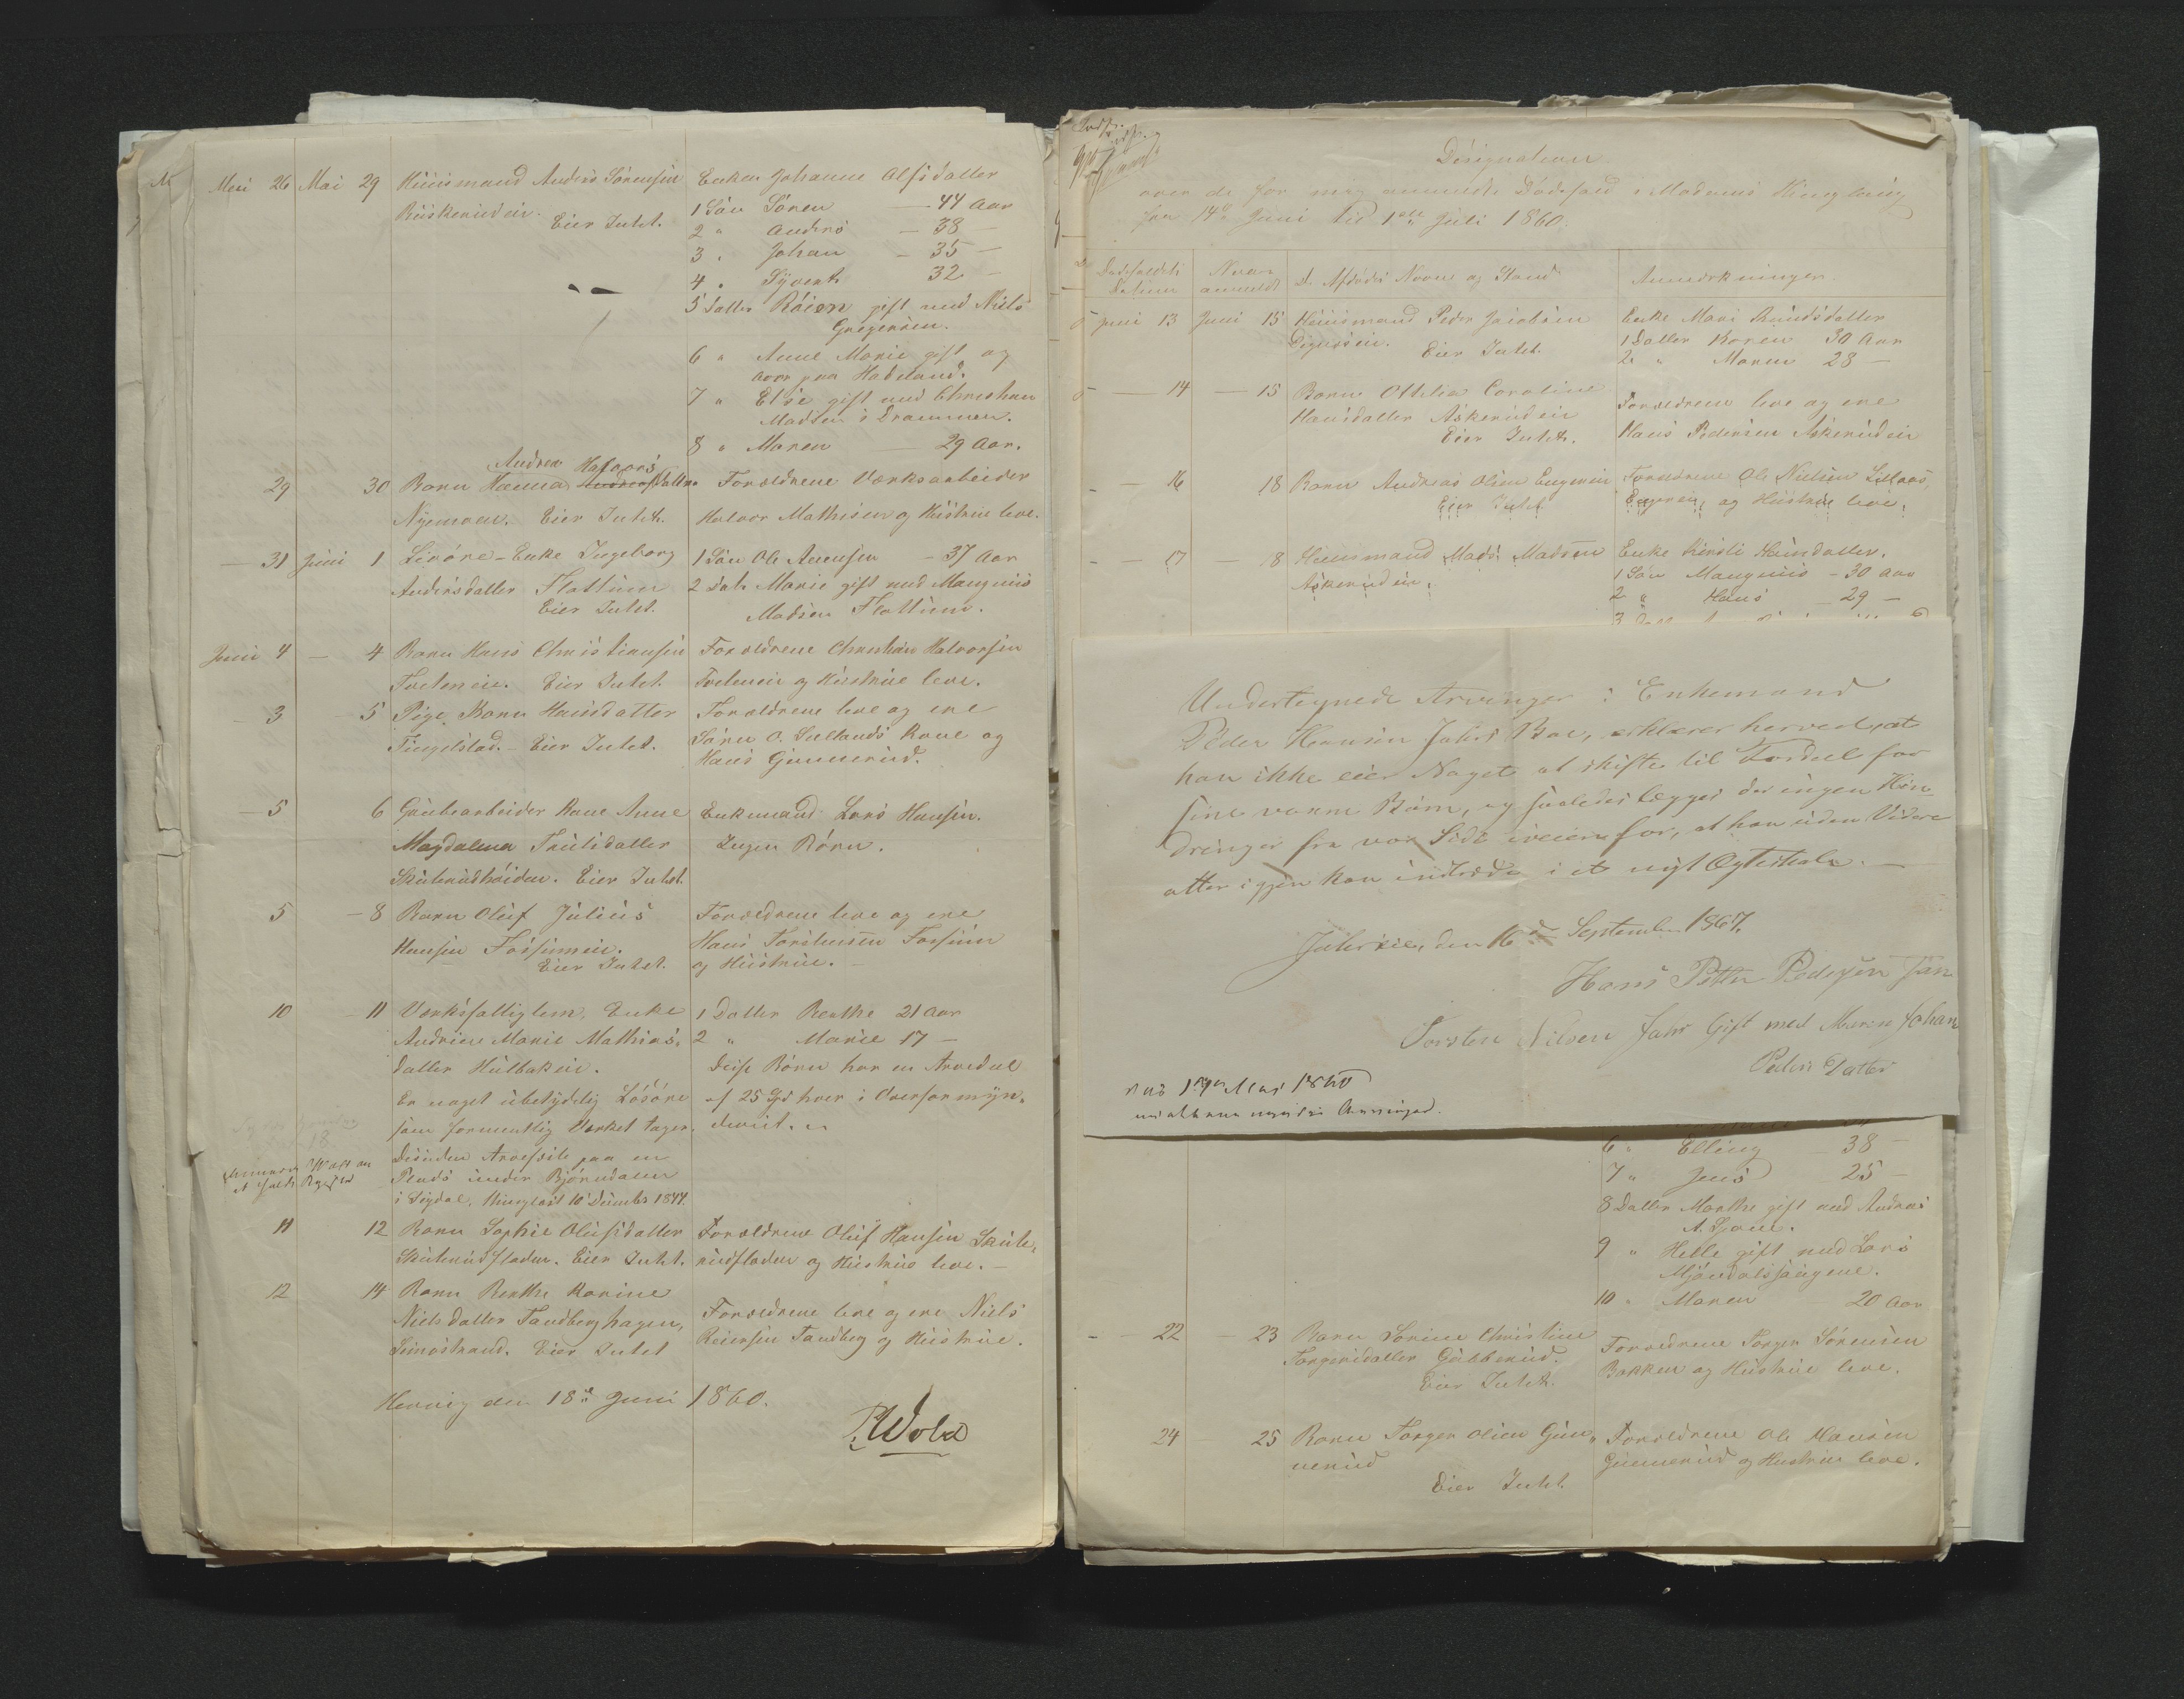 Mai 26 Mai 29 Huusmand Anders Sørensen Enken Johanne Olsdatter
Ruskerudeie. 1 Søn Søren — 44 Aar
Eier Intet.
2 " Anders — 38 —
3 " Johan — 35 —
4 " Syvert 32 —
5 Datter Raien gift med Niels
Gregersen.
6 " Anne Marie gift og
boer paa Hadeland.
7 " Else gift med Christian
Madsen i Drammen.
8 " Maren — 29 Aar.
Andrea Halvors
29 30 Barn Hanna datter Forældrene Værksarbeider
Nyemoen. Eier Intet. Halvor Mathisen og Hustrue leve.
— 31 Juni 1 Enke Ingeborg 1 Søn Ole Amensen — 37 Aar
Andersdatter Flattum 2 Datter Marie gift med Maugnus
Eier Intet. Madsen Flattum.
Juni 4 — 4 Barn Hans Christiansen Forældrene Christian Halvorsen
Tveteneie. Eier Intet. Tveteneie og Hustrue leve.
— 3 — 5 Pige Karen Hansdatter Forældrene leve og ere
Tingelstad. — Eier Intet. Søren O. Sullands Kone og
Hans Gunnerud.
— 5 6 Grubearbeider Kone Anne Enkemand Lars Hansen.
Magdalena Truls datter Ingen Børn.
Skuterudhøiden. Eier Intet.
5 — 8 Barn Oluf Julius Forældrene leve og ere
Hansen Fossumeie. Hans Torstensen Fossum
Eier Intet. og Hustrue. —
10 — 11 Værksfattiglem, Enke 1 Datter Berthe 21 Aar
Andrine Marie Mathias- 2 " Marie 17 —
datter Hulbakeie. Disse Børn har en Arvedeel
Er noget ubetydelig Løsøre af 25 Spd hver i Overformyn-
som formentlig Værket tager. deriet.
Desuden Arvefæste paa en
Plads under Bjørndalen
i Sigdal. Thinglæst 10 Decembr 1844.
11 12 Barn Sophie Olufsdatter Forældrene Oluf Hansen Skute-
Skuterudfladen. Eier Intet. rudfladen og Hustrue leve. —
12 14 Barn Berthe Karine
Nielsdatter Tandberghagen, Forældrene leve og ere Niels
Simostrand. Eier Intet Reiersen Tandberg og Hustrue.
Hervig den 18de Juni 1860.
P. Wold
Designation
over de for mig anmeldte Dødsfald i Modums Thinglaug
fra 14de Juni til 1ste Juli 1860.
Dødsfaldets Naar De Afdødes Navne og Stand Anmærkninger.
Datum anmeldt
Juni 13 Juni 15 Huusmand Peder Jacobsen Enke Mari Knudsdatter
Eier Intet. 1 Datter Karen 30 Aar
2 " Maren 28 —
— 14 — 15 Barn Othilia Caroline Forældrene leve og ere
Hansdatter Askerudeie Hans Pedersen Askerudeie
Eier Intet.
— 16 18 Barn Andreas Olsen Forældrene Ole Nielsen
Eier Intet og Hustrue leve.
— 17 — 18 Huusmand Mads Madsen Enke Kirsti Hansdatter.
Askerudeie. 1 Søn Maugnus — 30 Aar
2 " Hans — 29 —
Undertegnede Arvinger i Enkemand
Peder Hansen Jahrs Boe, erklærer herved, at
han ikke eier Noget at skifte til Fordeel for
sine voxne Børn, og saaledes lægges der ingen Hin-
dringer fra vor Side iveien for, at han uden Videre
atter igjen kan indtræde i et nyt Ægteskab. —
Jahrseie, den 16de September 1867.
Hans Petter Pedersen Søn
Torsten Nilsen Jahr Gift med Maren Johan
Peders Datter
1860
6 " Elling — 38 —
7 " Jens — 25 —
8 Datter Marthe gift med Andreas
9 " Helle gift med Lars
10 " Maren — 20 Aar
— 22 — 23 Barn Sørine Christine
Torgersdatter Gubberud. Forældrene Torger Sørensen
Eier Intet. Bakken og Hustrue leve.
24 25 Barn Torger Olsen Gun- Forældrene Ole Hansen
nerud Gunnerud og Hustrue leve.
Eier Intet.